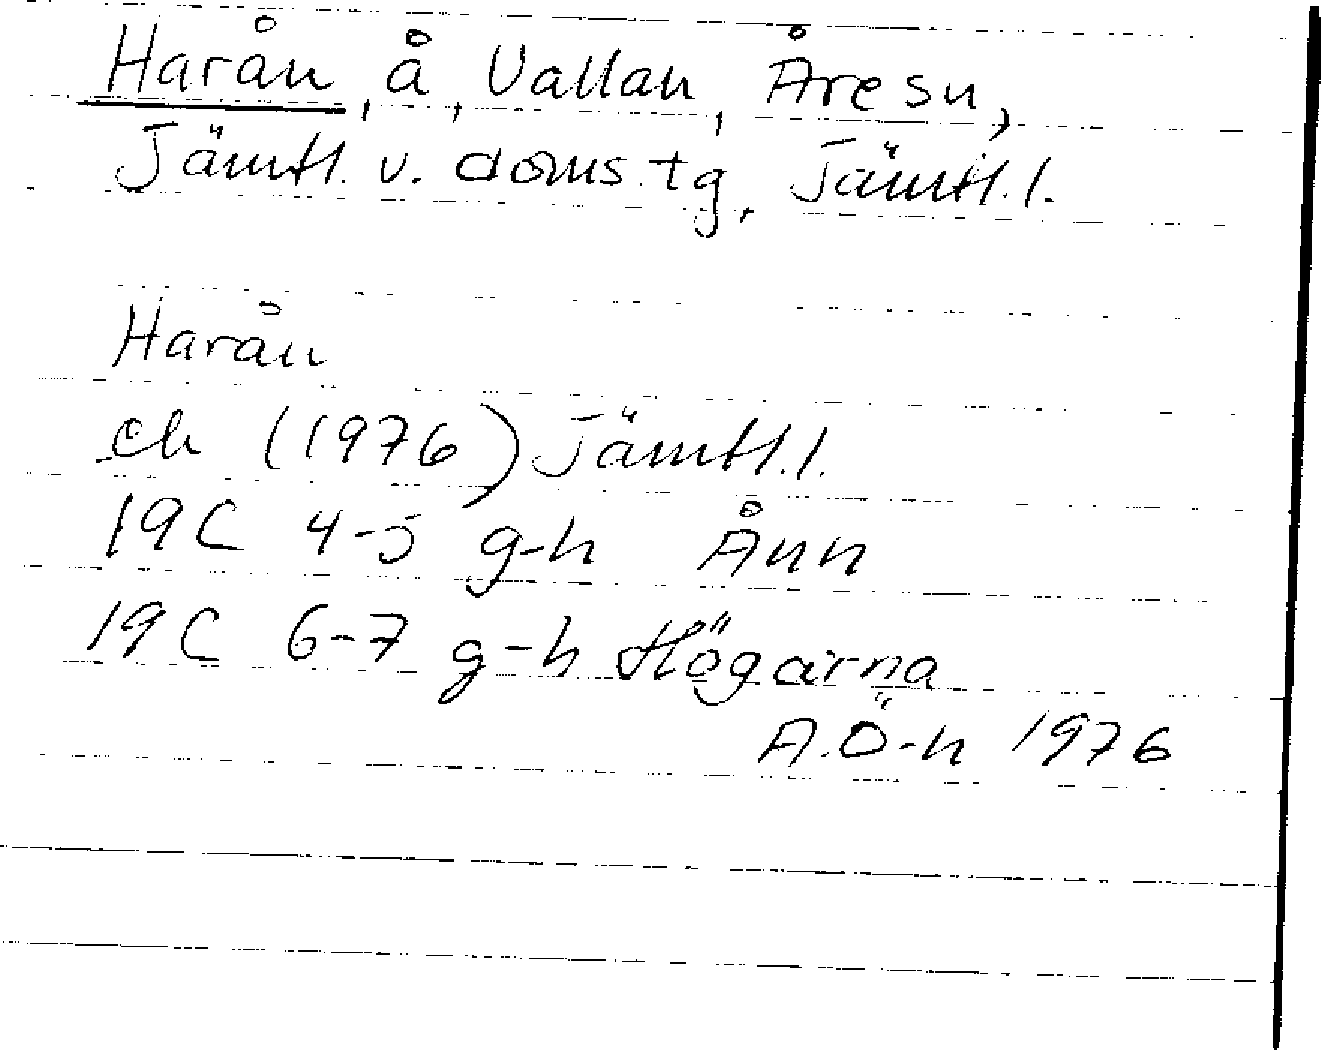 Harån, å, Vallan, Åre sn,
Jämtl. v. doms. tg, Jämtl. l.
Harån
ek (1976) Jämtl. l.
19C 4-5 g-h Ånn
19C 6-7 g-h Högarna
A.Ö-n 1976